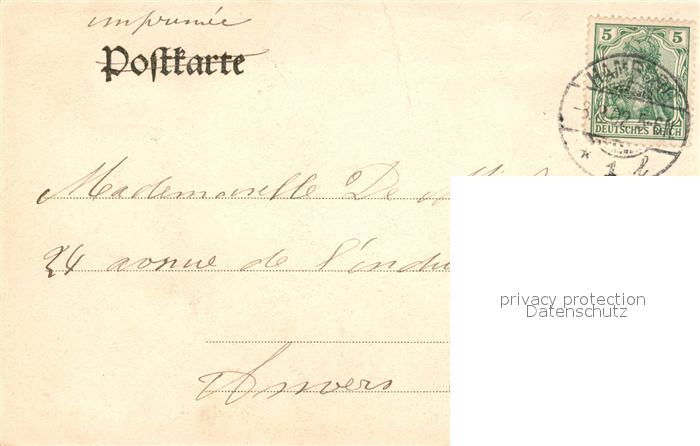 imprimée
Postkarte
5 5
DEUTSCHES REICH
HAMBURG
* 1 h
Mademoiselle De
24 avenue de l'indu
Anvers
privacy protection
Datenschutz